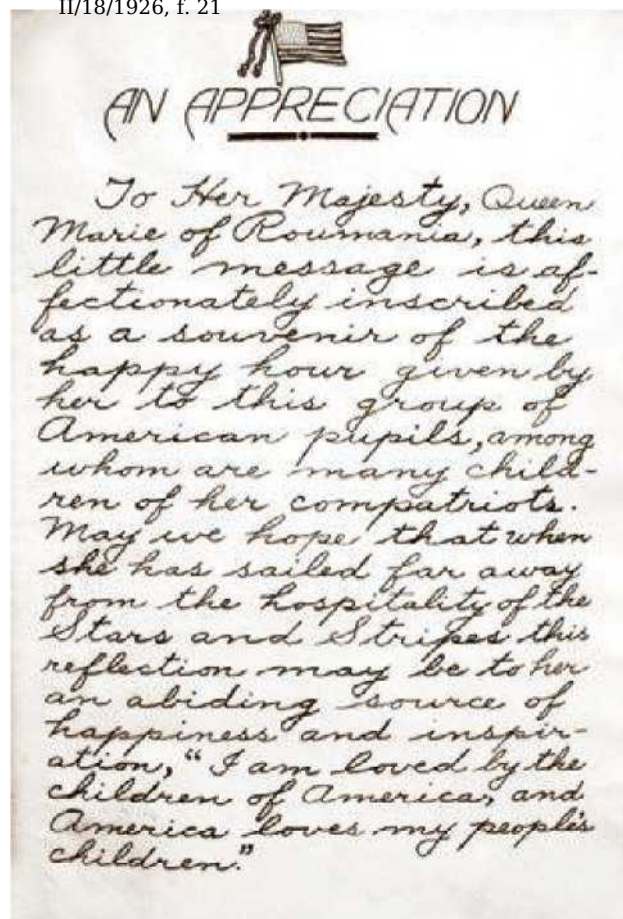 II/18/1926, f. 21
AN APPRECIATION
To Her Majesty, Queen
Marie of Roumania, this
little message is af-
fectionately inscribed
as a souvenir of the
happy hour given by
her to this group of
American pupils, among
whom are many child-
ren of her compatriots.
May we hope that when
she has sailed far away
from the hospitality of the
Stars and Stripes this
reflection may be to her
an abiding source of
happiness and inspir-
ation, "I am loved by the
children of America, and
America loves my people's
children."